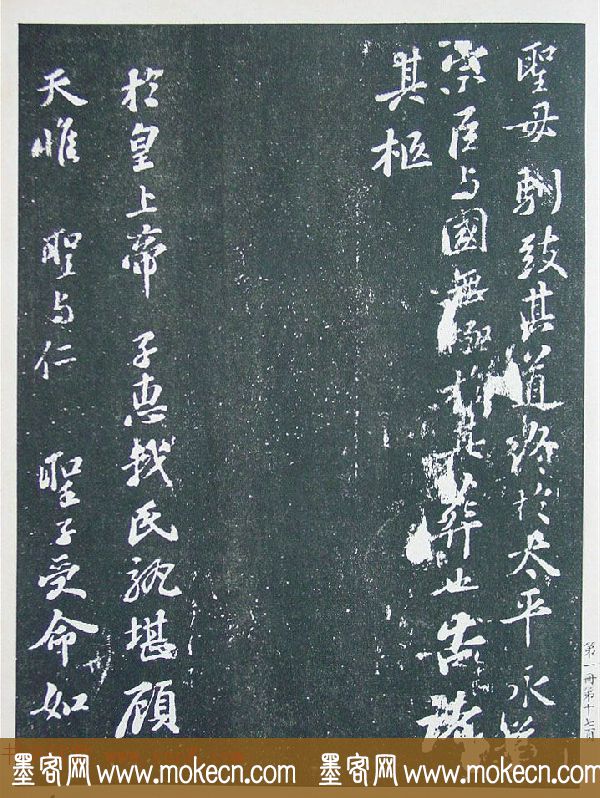 聖母 馴致其道終於太平永為
宗臣与國無極於其葬也告諸
其柩
於皇上帝 子惠我民孰堪顧
天惟 聖与仁 聖子受命如
第一冊第十七頁
墨客网www.mokecn.com 墨客网www.mokecn.com